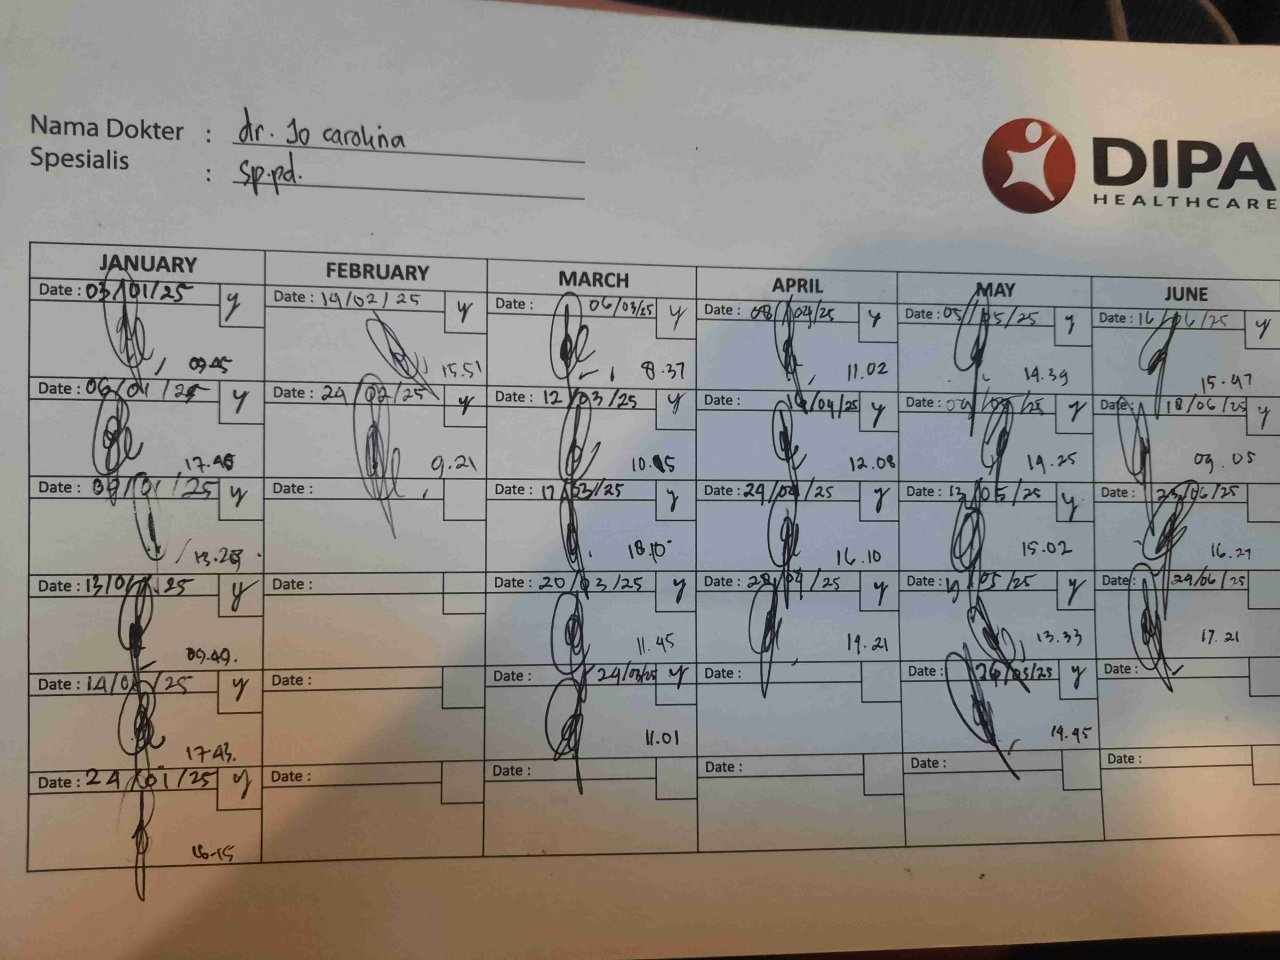 Nama Dokter : dr. Jo carolina
Spesialis : Sp.pd.
DIPA
HEALTHCARE
JANUARY FEBRUARY MARCH APRIL MAY JUNE
Date : 03/01/25 y Date : 19/02/25 y Date : 06/03/25 y Date : 08/04/25 y Date : 05/05/25 y Date : 16/06/25 y
09.45 15.51 8.37 11.02 14.39 15.47
Date : 06/01/25 y Date : 24/02/25 y Date : 12/03/25 y Date : /04/25 y Date : /25 y Date : 18/06/25 y
17.45 9.21 10.15 12.08 14.25 09.05
Date : 09/01/25 y Date : Date : 17/03/25 y Date : 24/04/25 y Date : 13/05/25 y Date : 25/06/25
13.25 18.10 16.10 15.02 16.27
Date : 13/01/25 y Date : Date : 20/03/25 y Date : 28/04/25 y Date : /05/25 y Date : 29/06/25
09.49. 11.45 14.21 13.33 17.21
Date : 14/01/25 y Date : Date : 24/03/25 y Date : Date : 26/05/25 y Date :
17.43. 11.01 14.45
Date : 24/01/25 y Date : Date : Date : Date : Date :
16.15